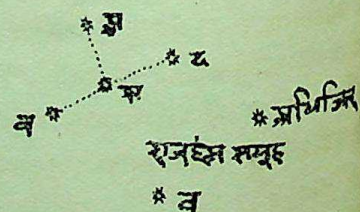 व
अभिजित
राजहंस समूह
व